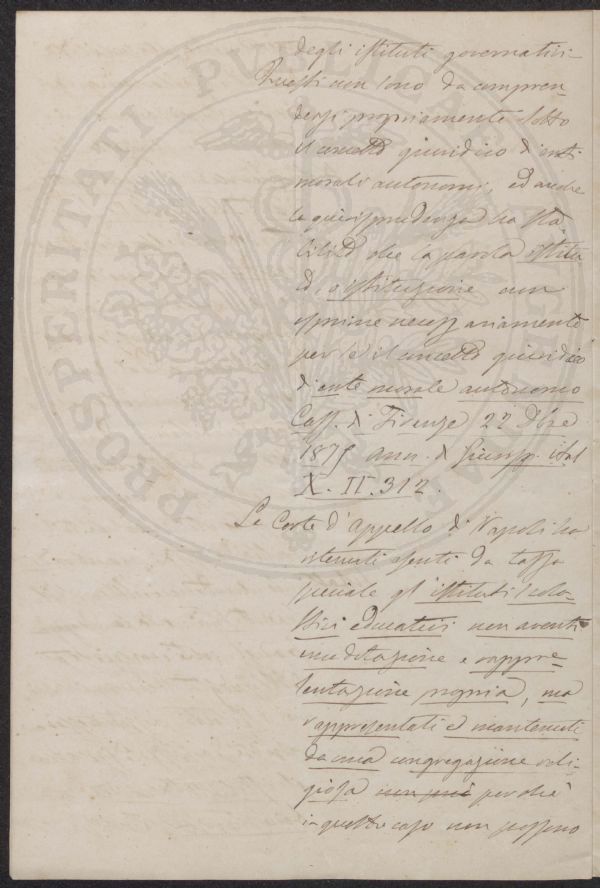 degli istituti governativi -
Questi non sono da compren
dersi propriamente sotto
il concetto giuridico d'enti
morali autonomi, ed anche
la giurisprudenza ha sta
bilito che la parola istitu
to, o istituzione non
esprime necessariamente
per se il concetto giuridico
d'ente morale autonomo
Cass. di Firenze 22 Dbre
1875 ann. di Giurisp. ital
X. II. 312.
La Corte d'Appello di Napoli ha
ritenuti esenti da tassa
speciale gl'istituti scola-
stici educativi non aventi
una dotazione e rappre-
sentazione propria, ma
rappresentati e mantenuti
da una congregazione reli-
giosa non più perchè
in questo caso non possono
PROSPERITATI PUBLICAE AUGENDAE